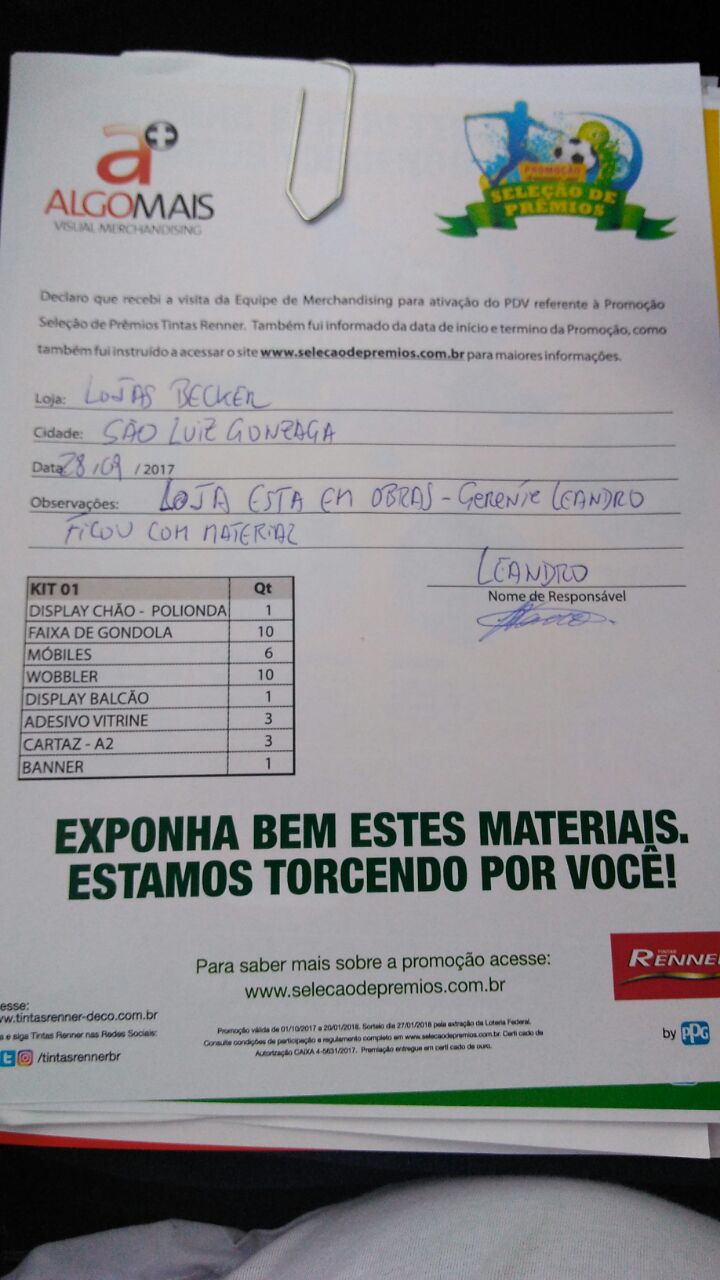 a+
ALGOMAIS
VISUAL MERCHANDISING
PROMOÇÃO
SELEÇÃO DE
PRÊMIOS
Declaro que recebi a visita da Equipe de Merchandising para ativação do PDV referente à Promoção
Seleção de Prêmios Tintas Renner. Também fui informado da data de início e termino da Promoção, como
também fui instruído a acessar o site www.selecaodepremios.com.br para maiores informações.
Loja: LOJAS BECKER
Cidade: SÃO LUIZ GONZAGA
Data: 28/09 / 2017
Observações: LOJA ESTA EM OBRAS - GERENTE LEANDRO
FICOU COM MATERIAL
LEANDRO
Nome de Responsável
KIT 01 Qt
DISPLAY CHÃO - POLIONDA 1
FAIXA DE GONDOLA 10
MÓBILES 6
WOBBLER 10
DISPLAY BALCÃO 1
ADESIVO VITRINE 3
CARTAZ - A2 3
BANNER 1
EXPONHA BEM ESTES MATERIAIS.
ESTAMOS TORCENDO POR VOCÊ!
Para saber mais sobre a promoção acesse:
www.selecaodepremios.com.br
TINTAS
RENNER
by PPG
esse:
ww.tintasrenner-deco.com.br
a e siga Tintas Renner nas Redes Sociais:
/tintasrennerbr
Promoção válida de 01/10/2017 a 20/01/2018. Sorteio dia 27/01/2018 pela extração da Loteria Federal.
Consulte condições de participação e regulamento completo em www.selecaodepremios.com.br. Certi cado de
Autorização CAIXA 4-5631/2017. Premiação entregue em certi cado de ouro.